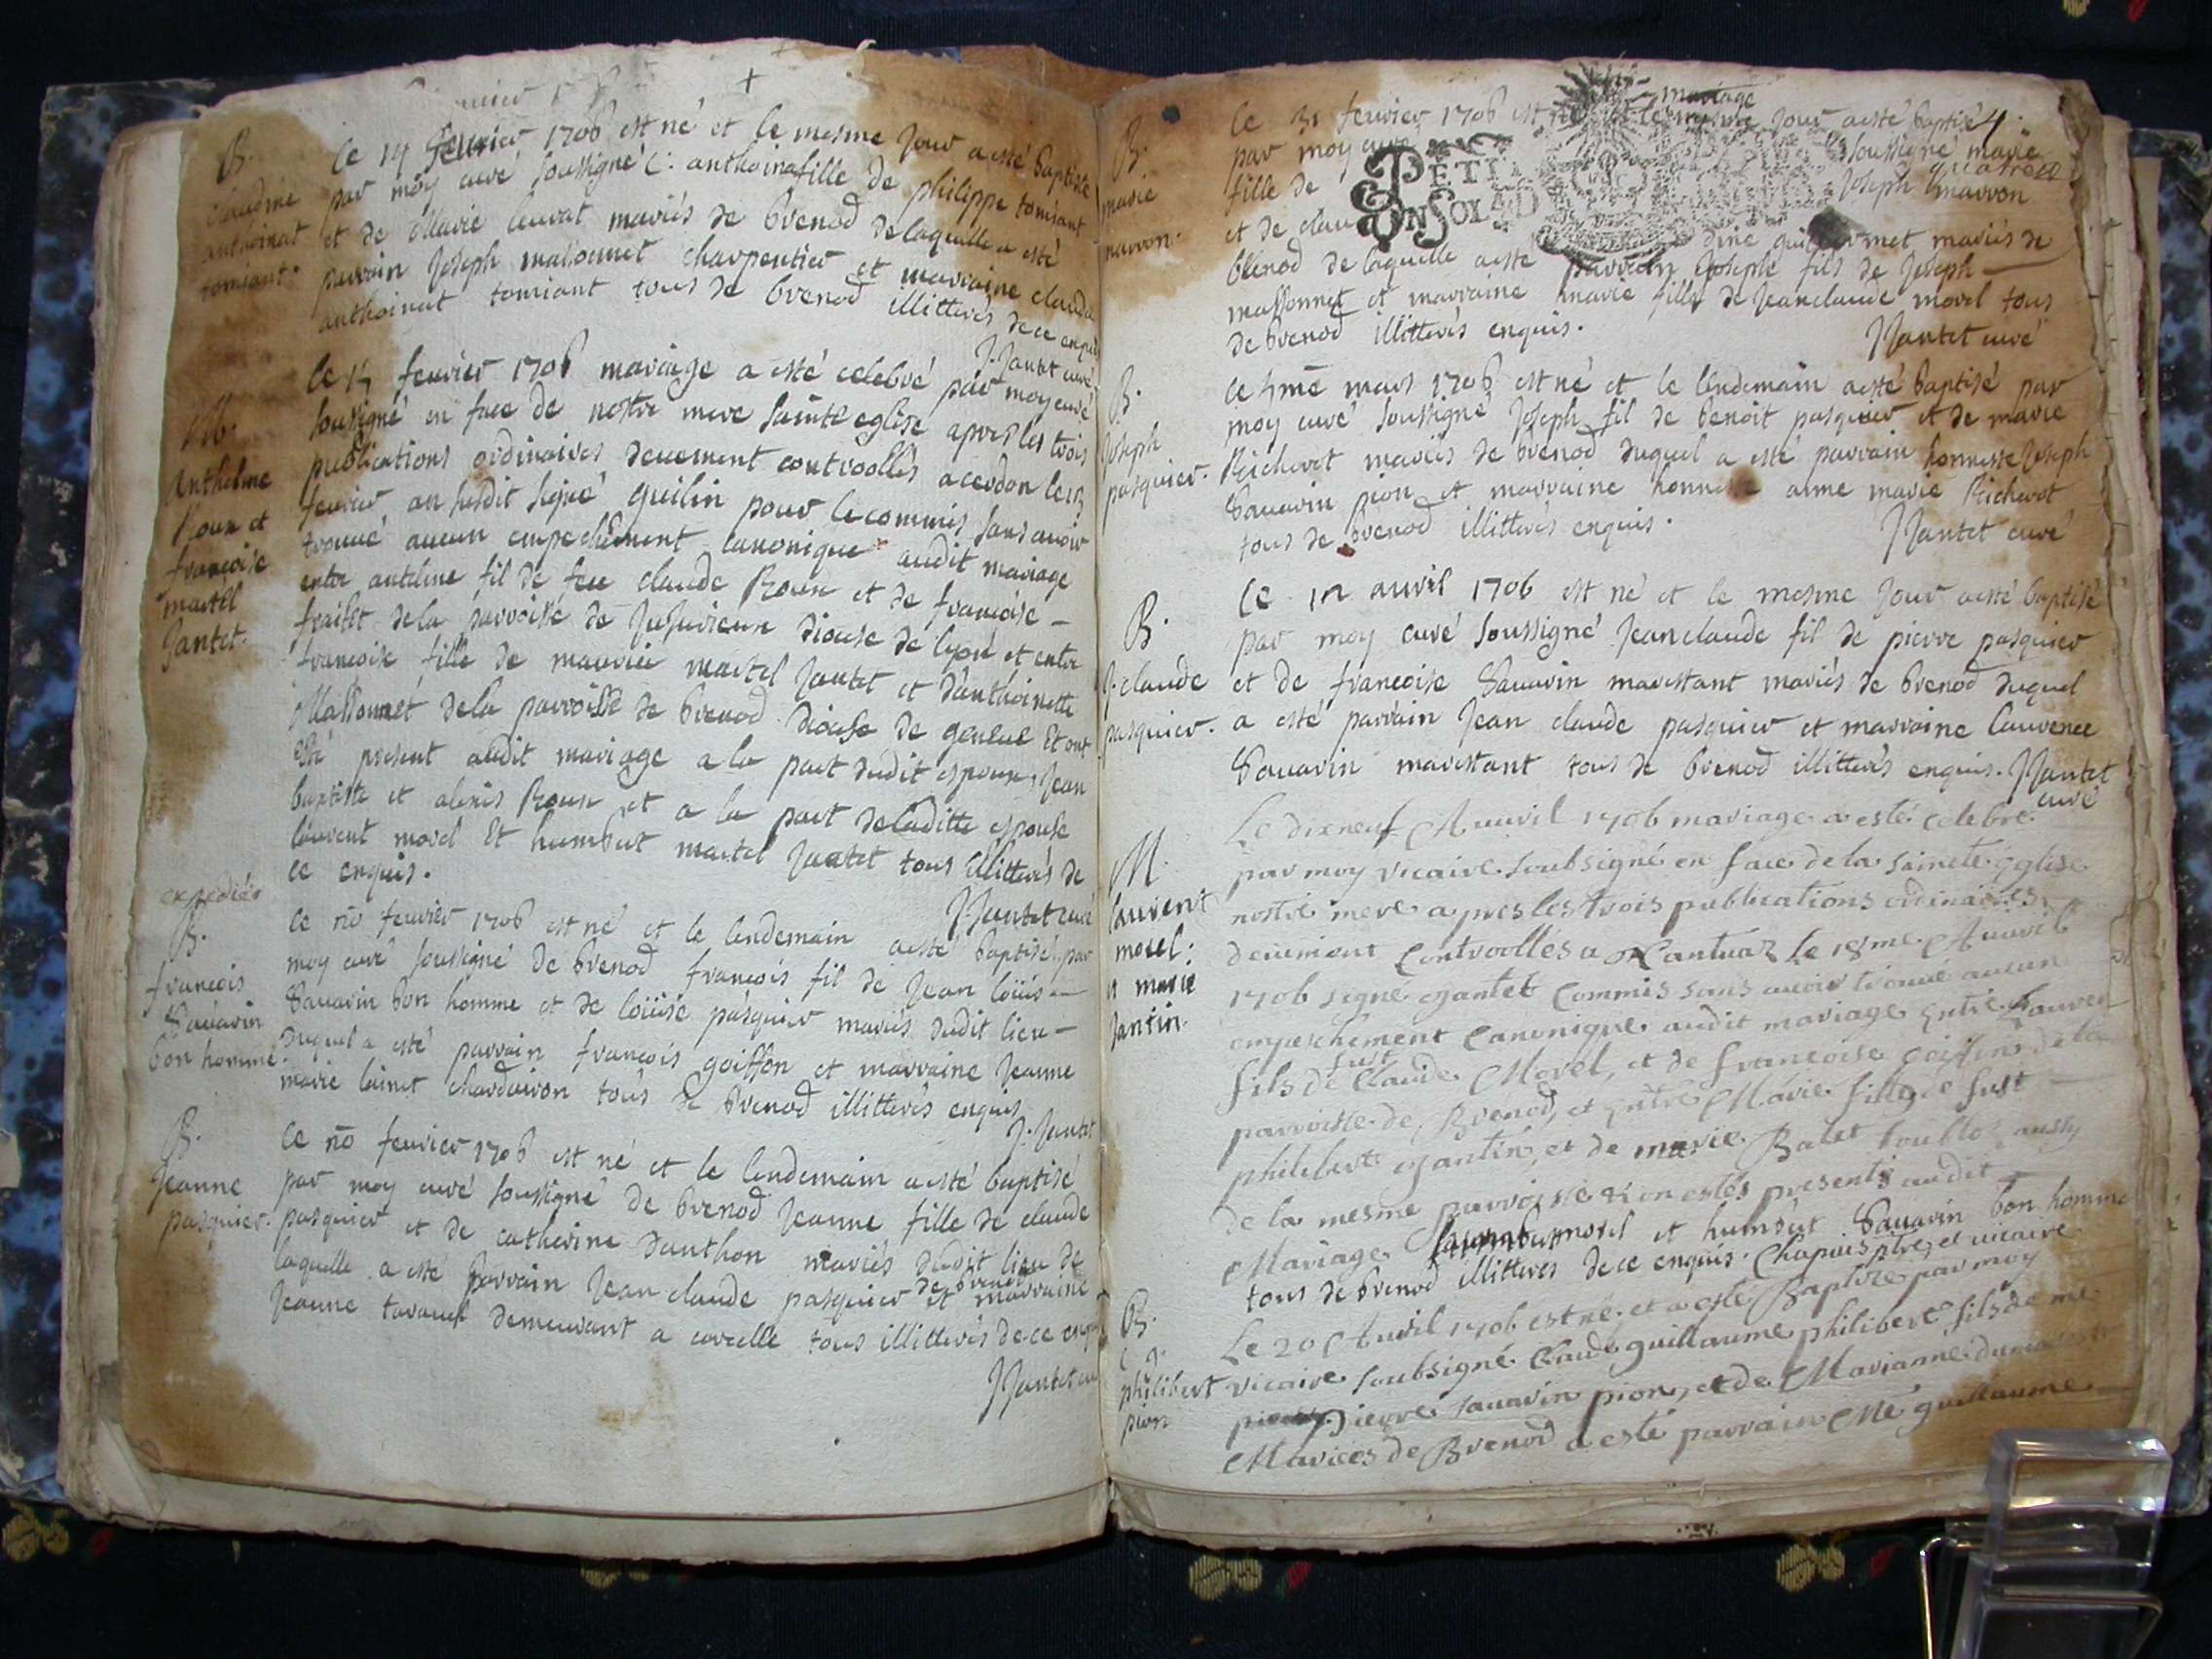 B.
claudine
anthoinat
tomiant.
le 14 feurier 1706 est né et le mesme Jour a esté baptisée
par moy curé soussigné C: anthoina fille de philippe tomiant
et de Marie leurat mariés de brenod de laquelle a esté
parrain Joseph massonnet charpentier et marraine claudine
anthoinat tomiant tous de brenod illitterés de ce enquis
J. Jantet curé
M.
Anthelme
Roux et
francoise
martel
Jantet.
le feurier 1706 mariage a esté celebré par moy curé
soussigné en face de nostre mere sainte eglise apres les trois
publications ordinaires deuement controollés a cerdon le
feurier an susdit signé guilin pour le commis sans avoir
trouué aucun empechement canonique audit mariage
entre antelme fil de feu claude Roux et de francoise –
fraitet de la parroisse de Jujurieux diocese de lyon et entre
francoise fille de maurice martel Jantet et d'anthoinette
Massonnet de la parroisse de brenod diocese de geneue Et ont
esté present audit mariage a la part dudit espoux, Jean
baptiste et alexis Roux et a la part de laditte espouse
laurent morel Et humbert martel Jantet tous illitterés de
ce enquis.
J. Jantet curé
expedié
B.
francois
Sauarin
bon homme
le feurier 1706 est né et le lendemain a esté baptisé par
moy curé soussigné de brenod francois fil de Jean loüis –
Sauarin bon homme et de loüise pasquier mariés dudit lieu –
duquel a esté parrain francois goiffon et marraine Jeanne
marie lainet chardairon tous de brenod illitterés enquis
J. Jantet
B.
Jeanne
pasquier.
le feurier 1706 est né et le lendemain a esté baptisé
par moy curé soussigné de brenod Jeanne fille de claude
pasquier et de catherine danthon mariés dudit lieu de
laquelle a esté parrain Jean claude pasquier de brenod et marraine
Jeanne tauauel demeurant a corcelle tous illitterés de ce enquis
J Jantet curé
B.
marie
marron.
mariage
le feurier 1706 est né et le mesme Jour a esté baptisé
par moy curé soussigné marie
fille de Joseph marron
PETIT
ON SOL
et de claudine guillermet mariés de
brenod de laquelle a esté parrain Joseph fils de Joseph –
massonnet et marraine marie fille de Jeanclaude morel tous
de brenod illitterés enquis.
J Jantet curé
B.
Joseph
pasquier.
le mars 1706 est né et le lendemain a esté baptisé par
moy curé soussigné Joseph fil de benoit pasquier et de marie
Richerot mariés de brenod duquel a esté parrain honneste Joseph
Sauarin pion et marraine marie Richerot
tous de brenod illitterés enquis.
J Jantet curé
B.
J. claude
pasquier.
le auril 1706 est né et le mesme Jour a esté baptisé
par moy curé soussigné Jeanclaude fil de pierre pasquier
et de francoise Sauarin marestant mariés de brenod duquel
a esté parrain Jean claude pasquier et marraine laurence
Sauarin marestant tous de brenod illitterés enquis. J Jantet
curé
M.
laurent
morel:
et marie
Jantin.
Le dixneuf Auuril 1706 mariage a esté celebré
par moy vicaire soubsigné en face de la saincte Eglise
nostre mere apres les trois publications ordinaires
deuement Controollés a Nantua le 18me. Auuril
1706 signé Jantet Commis sans auoir trouué aucun
empeschement Canonique audit mariage Entre laurent
fils de fust Claude Morel, et de francoise Goiffon de la
parroisse de Brenod, et Entre Marie fille de fust –
philibert Jantin, et de marie Balet aussy
de la mesme parroisse et en estés presents audit –
Mariage morel et humbert Sauarin bon homme
tous de brenod illitterés de ce enquis. Chapuis ptre et vicaire
B.
C g.
philibert
pion
Le 20 Auuril 1706 est né et a esté Baptizé par moy
vicaire soubsigné Claude guillaume philibert fils de me
pierre sauarin pion, et de Marianne
Mariées de Brenod a esté parrain Me guillaume –